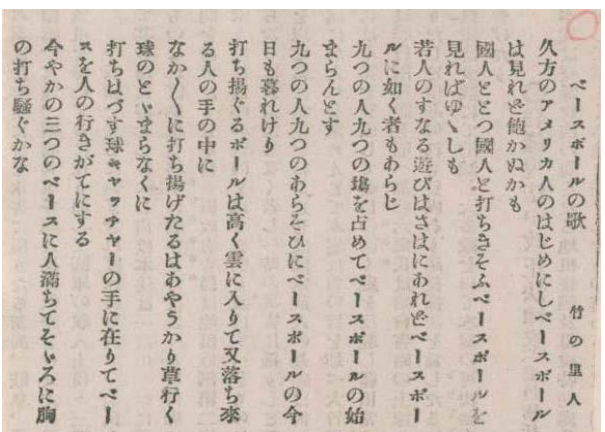 ベースボールの歌　竹の里人
久方のアメリカ人のはじめにしベースボール
は見れど飽かぬかも
國人ととつ國人と打ちきそふベースボールを
見ればゆゝしも
若人のすなる遊びはさはにあれどベースボー
ルに如く者もあらじ
九つの人九つの塲を占めてベースボールの始
まらんとす
九つの人九つのあらそひにベースボールの今
日も暮れけり
打ち揚ぐるボールは高く雲に入りて又落ち來
る人の手の中に
なか〳〵に打ち揚げたるはあやうかり草行く
球のとゝまらなくに
打ちはづす球キャッチャーの手に在りてベー
スを人の行きがてにする
今やかの三つのベースに人滿ちてそゝろに胸
の打ち騷ぐかな